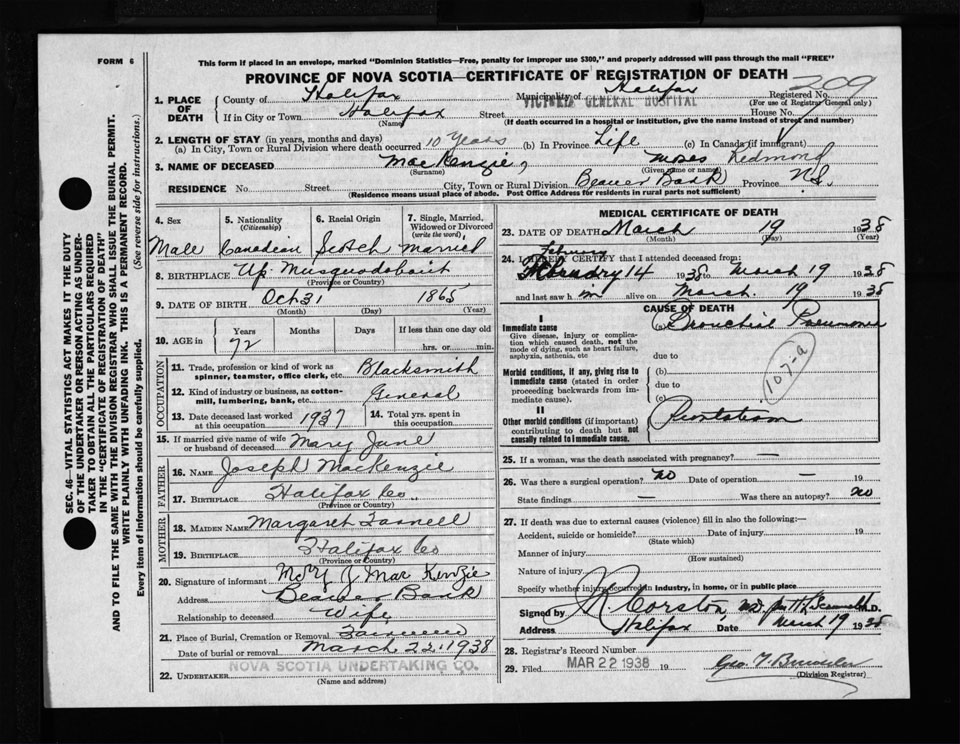 FORM 6
This form if placed in an envelope, marked "Dominion Statistics—Free, penalty for improper use $300," and properly addressed will pass through the mail "FREE"
PROVINCE OF NOVA SCOTIA—CERTIFICATE OF REGISTRATION OF DEATH
209
1. PLACE OF DEATH
County of Halifax Municipality of Halifax Registered No.
(For use of Registrar General only)
VICTORIA GENERAL HOSPITAL
If in City or Town Halifax Street House No.
(Name) (If death occurred in a hospital or institution, give the name instead of street and number)
2. LENGTH OF STAY (in years, months and days)
(a) In City, Town or Rural Division where death occurred 10 Years (b) In Province Life (c) In Canada (if immigrant)
3. NAME OF DECEASED MacKenzie, Moses Redmond
(Surname) (Given name or names)
RESIDENCE No Street City, Town or Rural Division Beaver Bank Province N.S.
(Residence means usual place of abode. Post Office Address for residents in rural parts not sufficient)
SEC. 46—VITAL STATISTICS ACT MAKES IT THE DUTY
OF THE UNDERTAKER OR PERSON ACTING AS UNDER-
TAKER TO OBTAIN ALL THE PARTICULARS REQUIRED
IN THE "CERTIFICATE OF REGISTRATION OF DEATH"
AND TO FILE THE SAME WITH THE DIVISION REGISTRAR WHO SHALL ISSUE THE BURIAL PERMIT.
WRITE PLAINLY WITH UNFADING INK. THIS IS A PERMANENT RECORD.
Every item of information should be carefully supplied. (See reverse side for instructions.)
4. Sex
Male
5. Nationality
(Citizenship)
Canadian
6. Racial Origin
Scotch
7. Single, Married, Widowed or Divorced
(write the word)
married
8. BIRTHPLACE Up. Musquodoboit
(Province or Country)
9. DATE OF BIRTH Oct 31 1865
(Month) (Day) (Year)
10. AGE in
Years Months Days If less than one day old
72 hrs. or min.
OCCUPATION
11. Trade, profession or kind of work as
spinner, teamster, office clerk, etc. Blacksmith
12. Kind of industry or business, as cotton-
mill, lumbering, bank, etc. General
13. Date deceased last worked
at this occupation 1937
14. Total yrs. spent in
this occupation
15. If married give name of wife
or husband of deceased Mary Jane
FATHER
16. NAME Joseph MacKenzie
17. BIRTHPLACE Halifax Co
(Province or Country)
MOTHER
18. MAIDEN NAME Margaret
19. BIRTHPLACE Halifax Co
(Province or Country)
20. Signature of informant Mary J MacKenzie
Address Beaver Bank
Relationship to deceased Wife
21. Place of Burial, Cremation or Removal
Date of burial or removal March 22, 1938
NOVA SCOTIA UNDERTAKING CO.
22. UNDERTAKER
(Name and address)
MEDICAL CERTIFICATE OF DEATH
23. DATE OF DEATH March 19 1938
(Month) (Day) (Year)
24. I HEREBY CERTIFY that I attended deceased from:
February 14 1938 to March 19 1938
and last saw him alive on March 19 1938
CAUSE OF DEATH
I
Immediate cause
Give disease, injury or complica-
tion which caused death, not the
mode of dying, such as heart failure,
asphyxia, asthenia, etc
(a) Bronchial Pneumonia
due to
107-a
Morbid conditions, if any, giving rise to
immediate cause (stated in order
proceeding backwards from im-
mediate cause).
(b)
due to
(c)
II
Other morbid conditions (if important)
contributing to death but not
causally related to immediate cause.
25. If a woman, was the death associated with pregnancy? —
26. Was there a surgical operation? no Date of operation — 19
State findings — Was there an autopsy? no
27. If death was due to external causes (violence) fill in also the following:—
Accident, suicide or homicide? Date of injury 19
(State which)
Manner of injury
(How sustained)
Nature of injury
Specify whether injury occurred in industry, in home, or in public place
Signed by N. Corston, M.D.
Address Halifax Date March 19 1938
28. Registrar's Record Number
29. Filed MAR 22 1938 19
(Division Registrar)